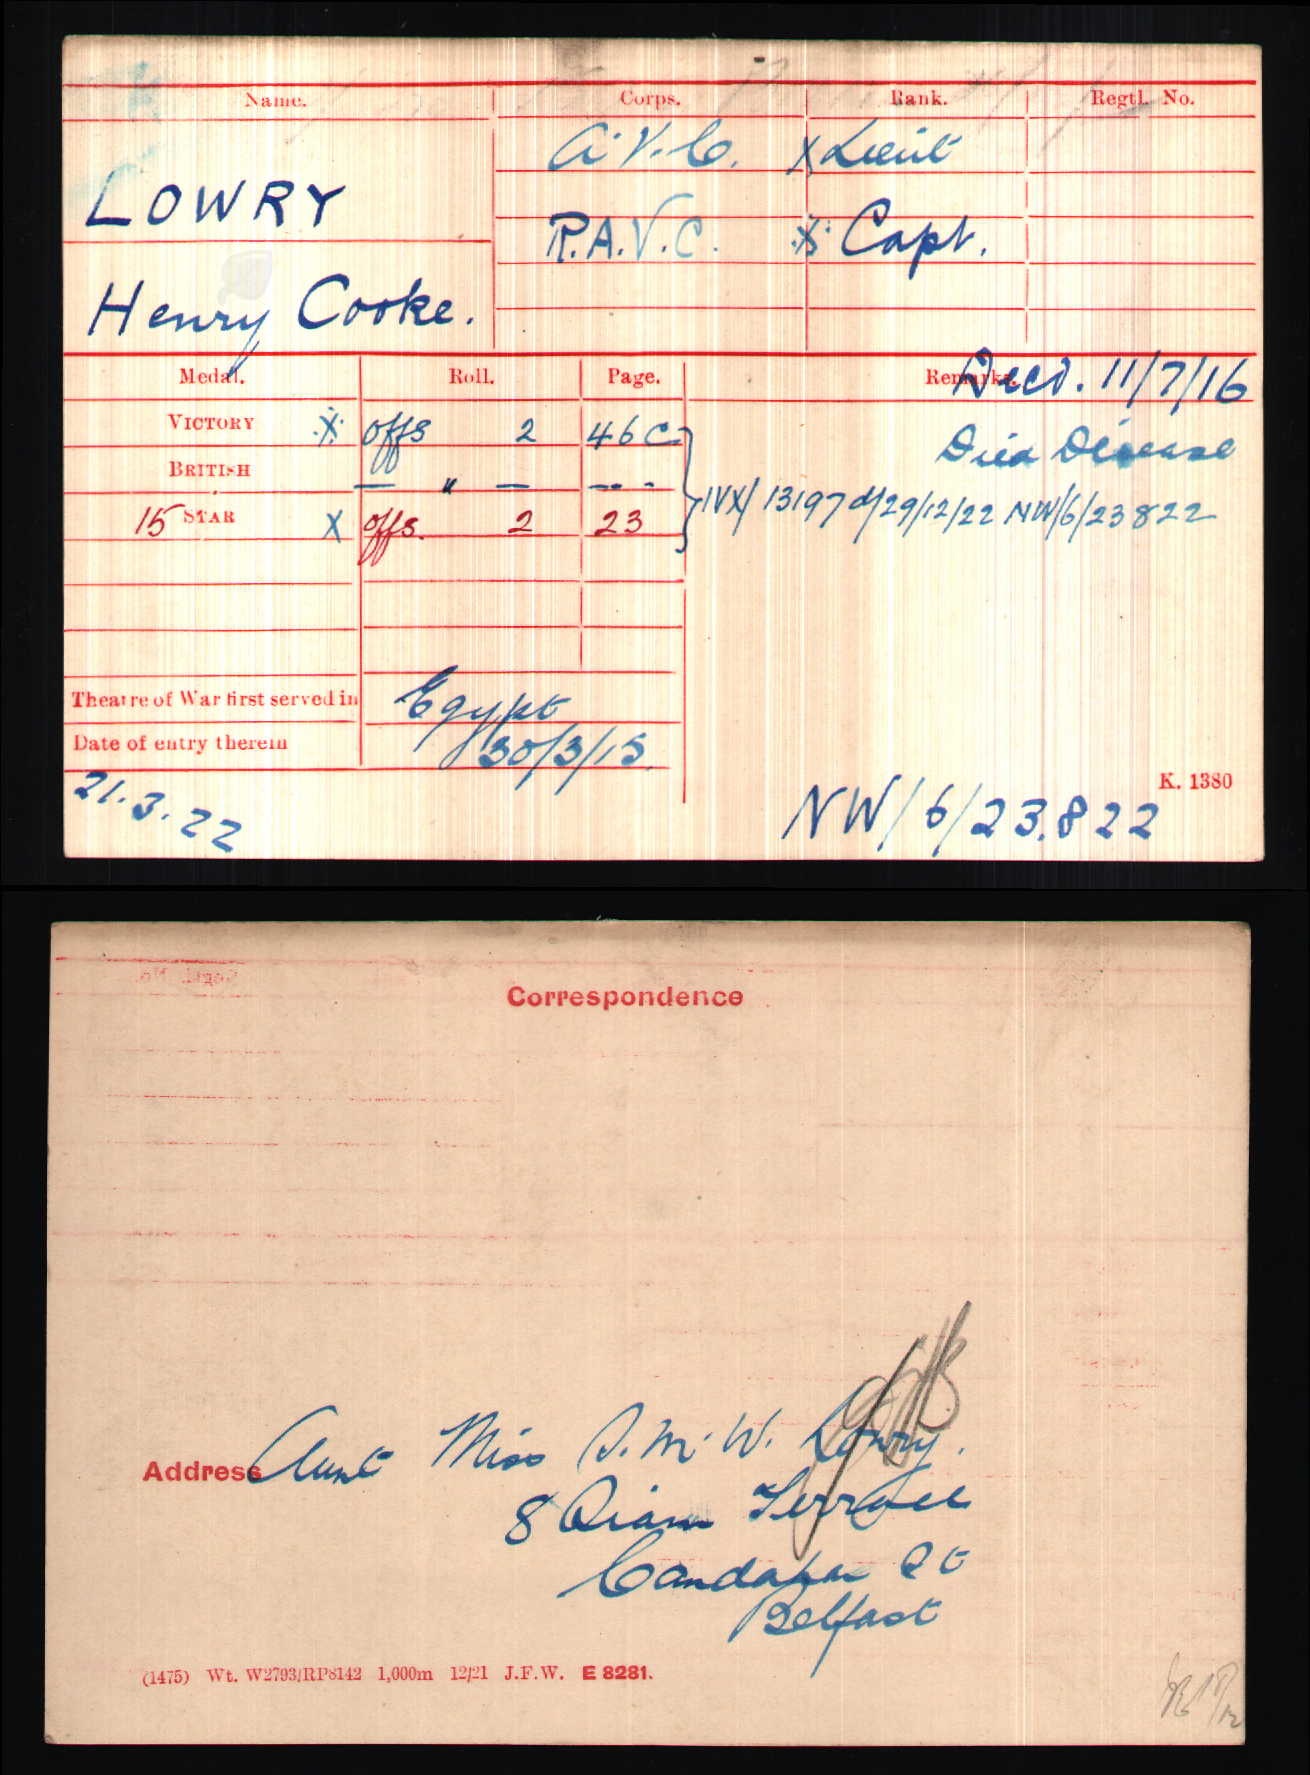 Name. Corps. Rank. Regtl. No.
A.V.C. X Lieut
LOWRY
R.A.V.C. X Capt.
Henry Cooke.
Medal. Roll. Page. Remarks.
Decd. 11/7/16
VICTORY X Offs 2 46 C
Died Disease
BRITISH — " — — -
IVX/13197 d/29/12/22 NW/6/23822
15 STAR X Offs. 2 23
Theatre of War first served in Egypt
Date of entry therein 30/3/15.
K. 1380
21.3.22
NW/6/23.822
Correspondence
Address Aunt Miss S. M. W. Lowry.
8 Terrace
Candahar St
Belfast
(1475) Wt. W2793/RP8142 1,000m 12/21 J.F.W. E 8281.